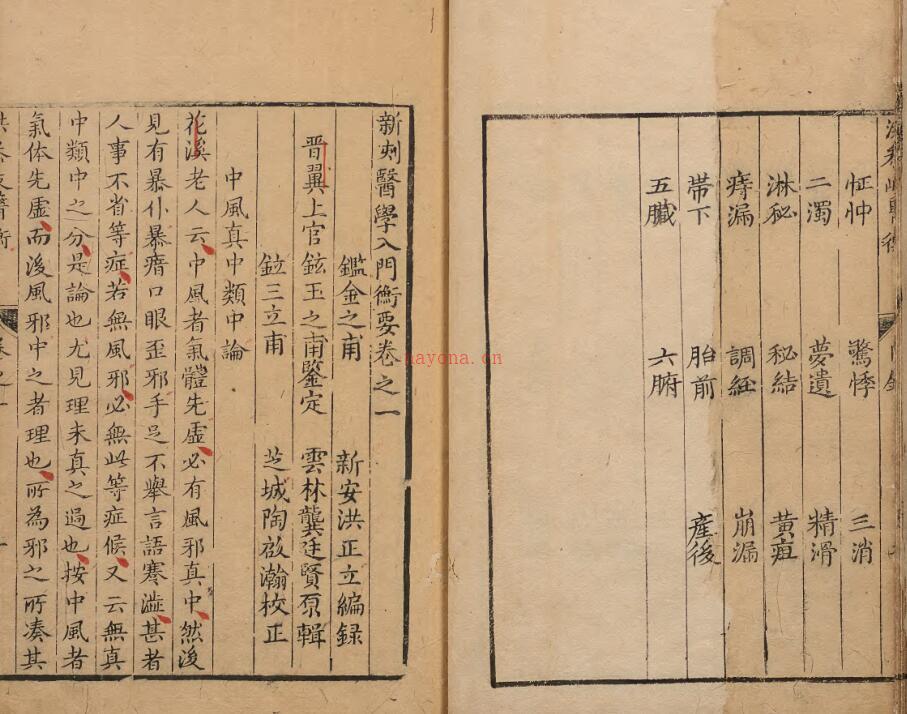 怔忡 驚悸 三消
二濁 夢遺 精滑
淋秘 秘結 黃疸
痔漏 調經 崩漏
帶下 胎前 產後
五臟 六腑
新刻醫學入門衡要卷之一
鑑金之甫 新安洪正立編録
晋翼上官鉉玉之甫鑒定 雲林龔廷賢原輯
三立甫 芝城陶啟瀚校正
中風真中類中論
花溪老人云中風者氣體先虛必有風邪真中然後
見有暴仆暴瘖口眼歪邪手足不舉言語蹇澁甚者
人事不省等症若無風邪必無此等症候又云無真
中類中之分是論也尤見理未真之過也按中風者
氣体先虛而後風邪中之者理也所為邪之所凑其
hayona.cn